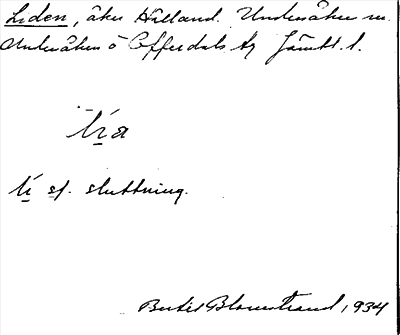 Liden, åker Hålland. Undersåkers sn.
Undersåkers o Offerdals tg Jämtl. l.
lı́a
lı́ sf. sluttning.
Bertil Blomstrand, 1934